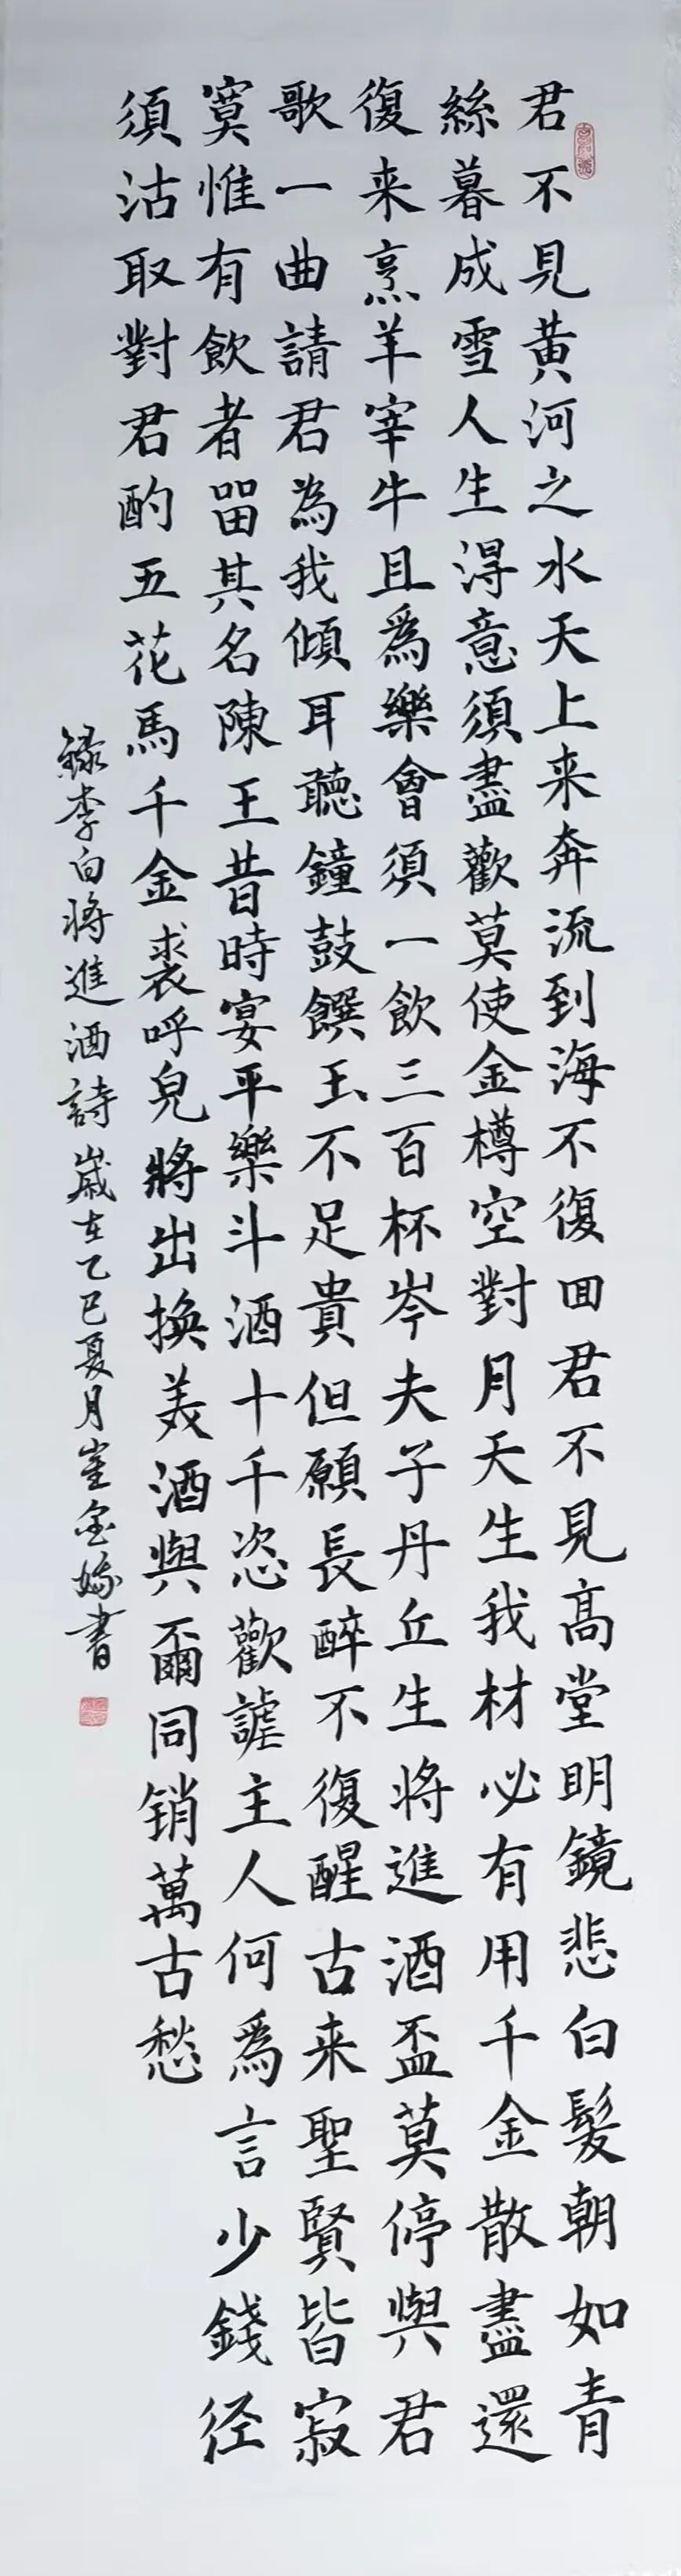 君不見黄河之水天上来奔流到海不復回君不見髙堂明鏡悲白髮朝如青
絲暮成雪人生淂意須盡歡莫使金樽空對月天生我材必有用千金散盡還
復来烹羊宰牛且為樂會須一飲三百杯岑夫子丹丘生将進酒盃莫停與君
歌一曲請君為我傾耳聽鐘鼓饌玉不足貴但願長醉不復醒古来聖賢皆寂
寞惟有飲者留其名陳王昔時宴平樂斗酒十千恣歡謔主人何為言少錢径
須沽取對君酌五花馬千金裘呼兒將出換美酒與爾同销萬古愁
録李白將進酒詩歲在乙巳夏月崔金娥書